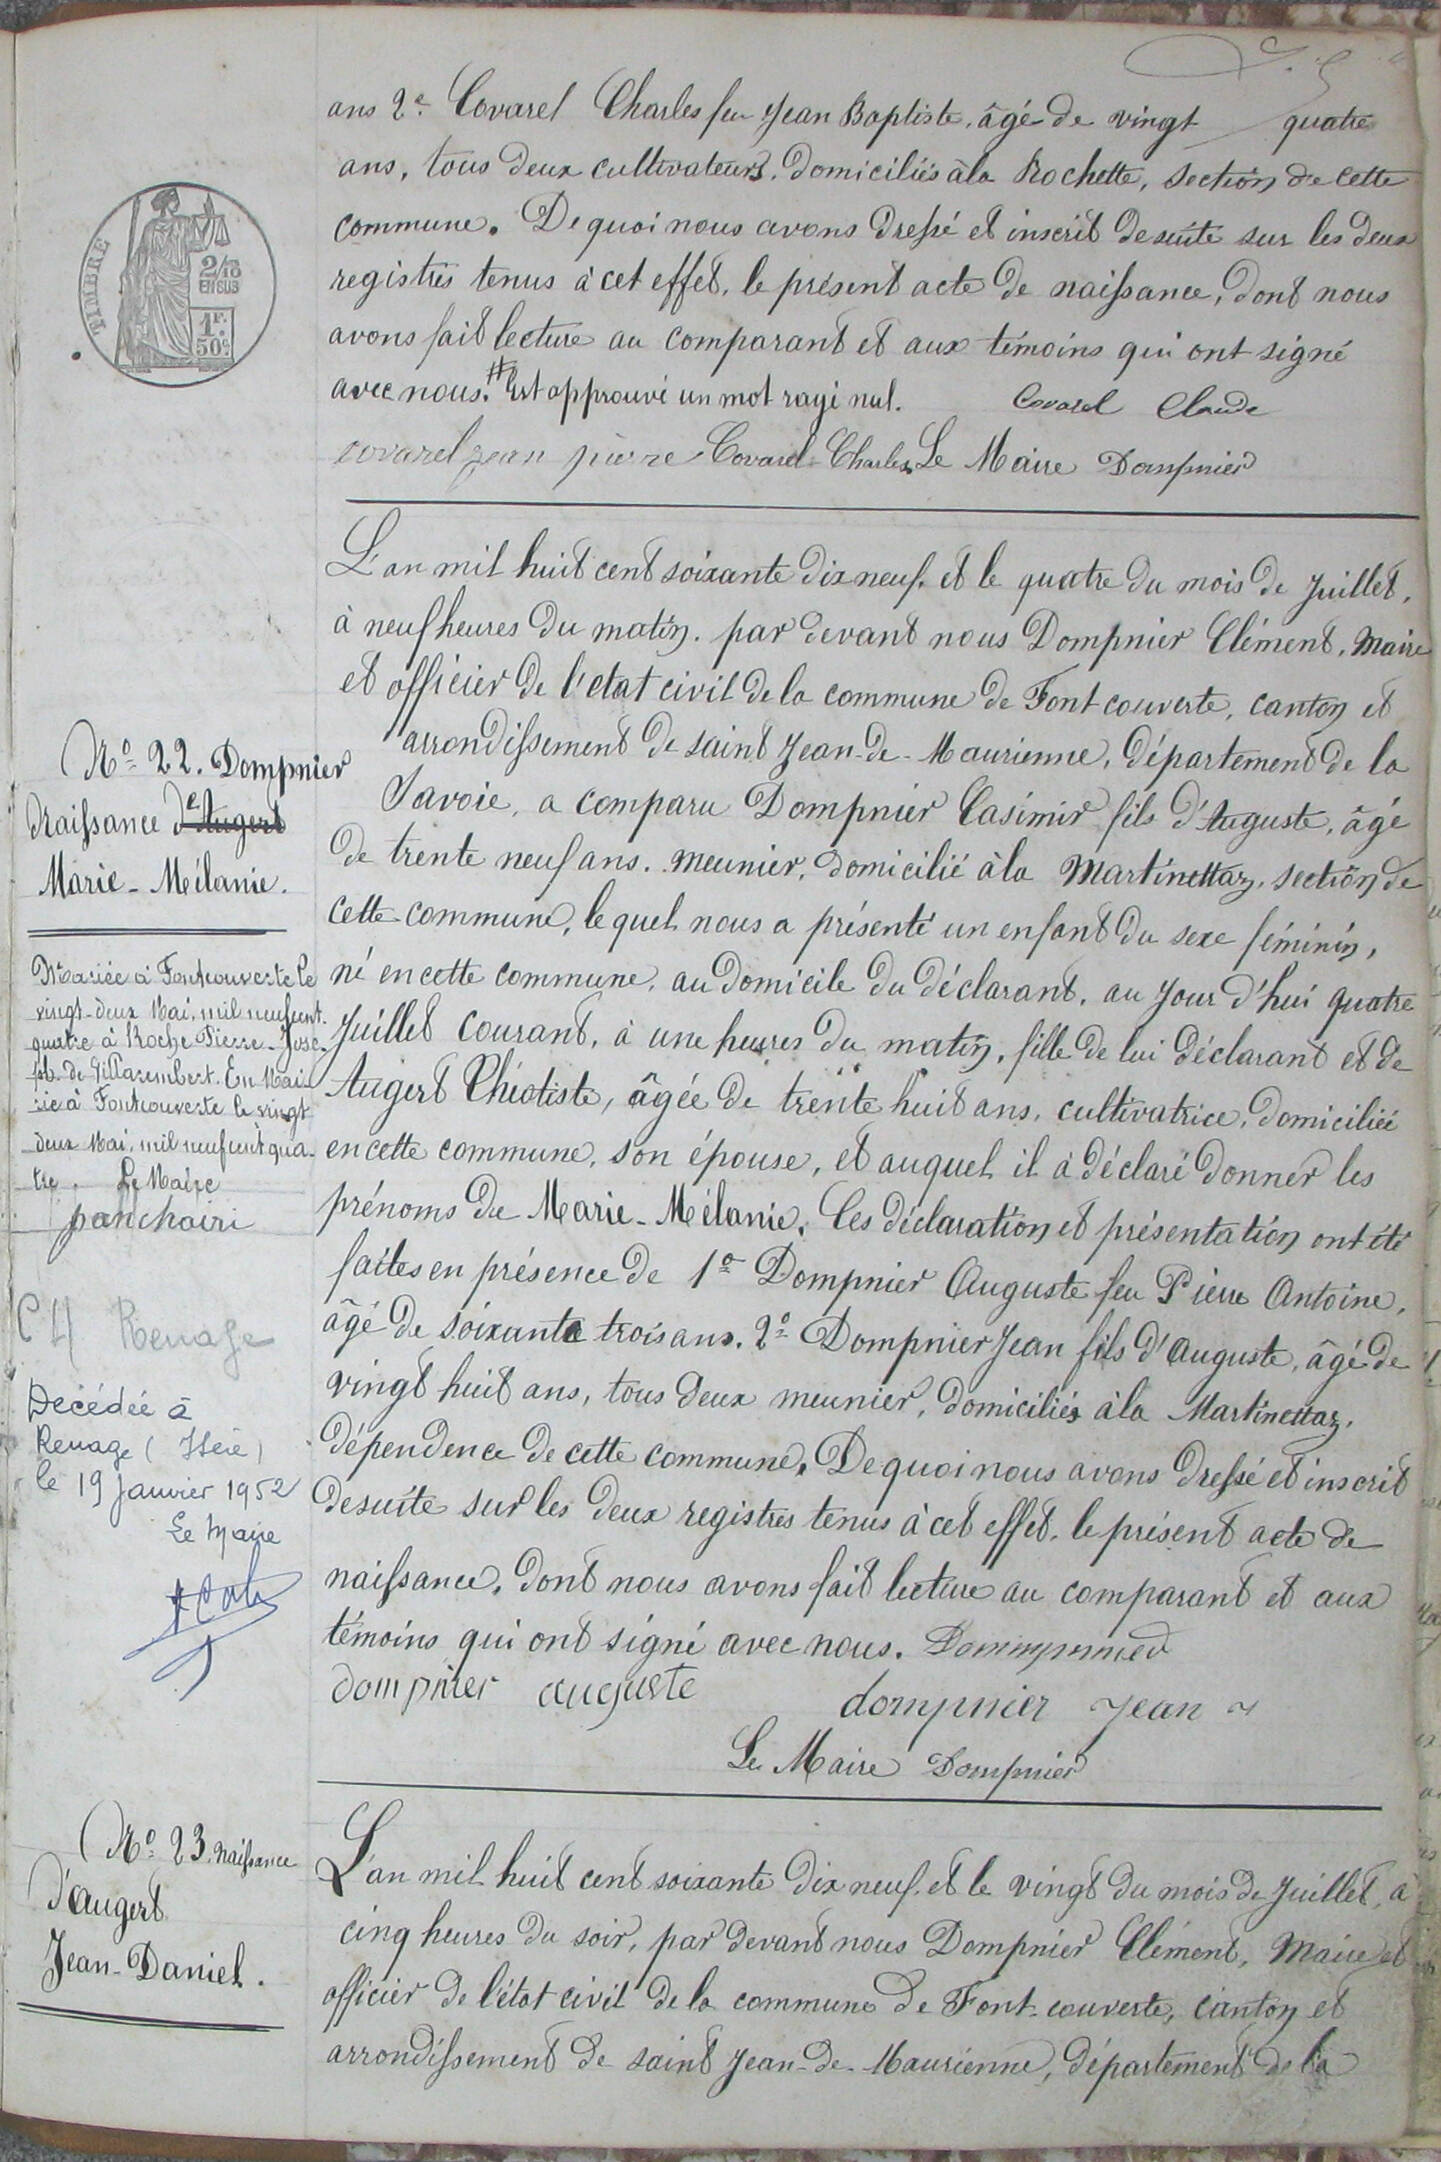 ans 2e. Covarel Charles feu Jean Baptiste, âgé de vingt quatre
ans, tous deux cultivateurs, domiciliés à la Rochette, section de cette
commune. De quoi nous avons dressé et inscrit de suite sur les deux
registres tenus à cet effet, le présent acte de naissance, dont nous
avons fait lecture au comparant et aux témoins qui ont signé
avec nous. Est approuvé un mot rayé nul. Covarel Claude
covarel jean pierre Covarel Charles Le Maire Dompnier
TIMBRE
2/10
EN SUS
1F.
50c
L'an mil huit cent soixante dix neuf, et le quatre du mois de Juillet,
à neuf heures du matin, par devant nous Dompnier Clément, Maire
et officier de l'état civil de la commune de Font couverte, canton et
arrondissement de saint Jean-de-Maurienne, département de la
Savoie, a comparu Dompnier Casimir fils d'Auguste, âgé
de trente neuf ans, meunier, domicilié à la Martinettaz, section de
cette commune, lequel nous a présenté un enfant du sexe féminin,
né en cette commune, au domicile du déclarant, au jour d'hui quatre
Juillet courant, à une heures du matin, fille de lui déclarant et de
Augert Théotiste, âgée de trente huit ans, cultivatrice, domiciliée
en cette commune, son épouse, et auquel il à déclaré donner les
prénoms de Marie-Mélanie. Ces déclaration et présentation ont été
faites en présence de 1o Dompnier Auguste feu Pierre Antoine,
âgé de soixante trois ans. 2o Dompnier Jean fils d'Auguste, âgé de
vingt huit ans, tous deux meunier, domiciliés à la Martinettaz,
dépendence de cette commune. De quoi nous avons dressé et inscrit
de suite sur les deux registres tenus à cet effet, le présent acte de
naissance, dont nous avons fait lecture au comparant et aux
témoins qui ont signé avec nous. Dompnier
dompnier auguste dompnier Jean
Le Maire Dompnier
No 22. Dompnier
Naissance d'Augert
Marie-Mélanie.
Mariée à Fontcouverte le
vingt-deux Mai, mil neuf cent
quatre à Roche Pierre-Jose-
ph de Villarembert. En Mai-
rie à Fontcouverte le vingt
deux Mai, mil neuf cent qua-
tre. Le Maire
C 4 Renage
Décédée à
Renage (Isère)
le 19 Janvier 1952
Le Maire
No 23. Naissance
d'Augert
Jean-Daniel.
L'an mil huit cent soixante dix neuf, et le vingt du mois de Juillet, à
cinq heures du soir, par devant nous Dompnier Clément, Maire et
officier de l'état civil de la commune de Font-couverte, canton et
arrondissement de saint Jean-de-Maurienne, département de la